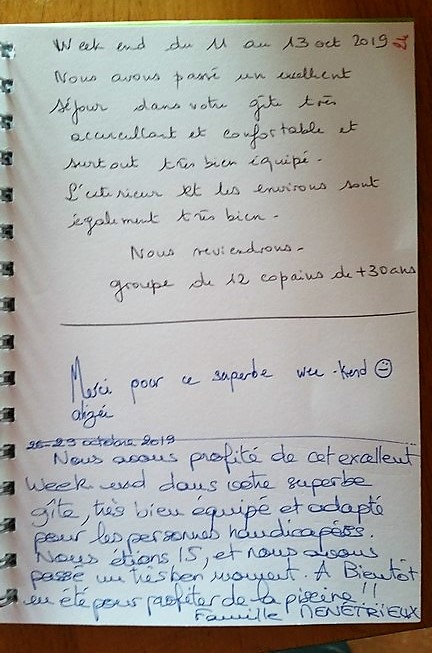 Week end du 11 au 13 oct 2019
Nous avons passé un excellent
séjour dans votre gîte très
accueillant et confortable et
surtout très bien équipé.
L'extérieur et les environs sont
également très bien.
Nous reviendrons.
groupe de 12 copains de +30ans
Merci pour ce superbe wee-kend ☺
alizée
26-29 octobre 2019
Nous avons profité de cet excellent
week-end dans votre superbe
gîte, très bien équipé et adapté
pour les personnes handicapées.
Nous étions 15, et nous avons
passé un très bon moment. A Bientôt
en été pour profiter de la piscine !!
Famille MENETRIEUX